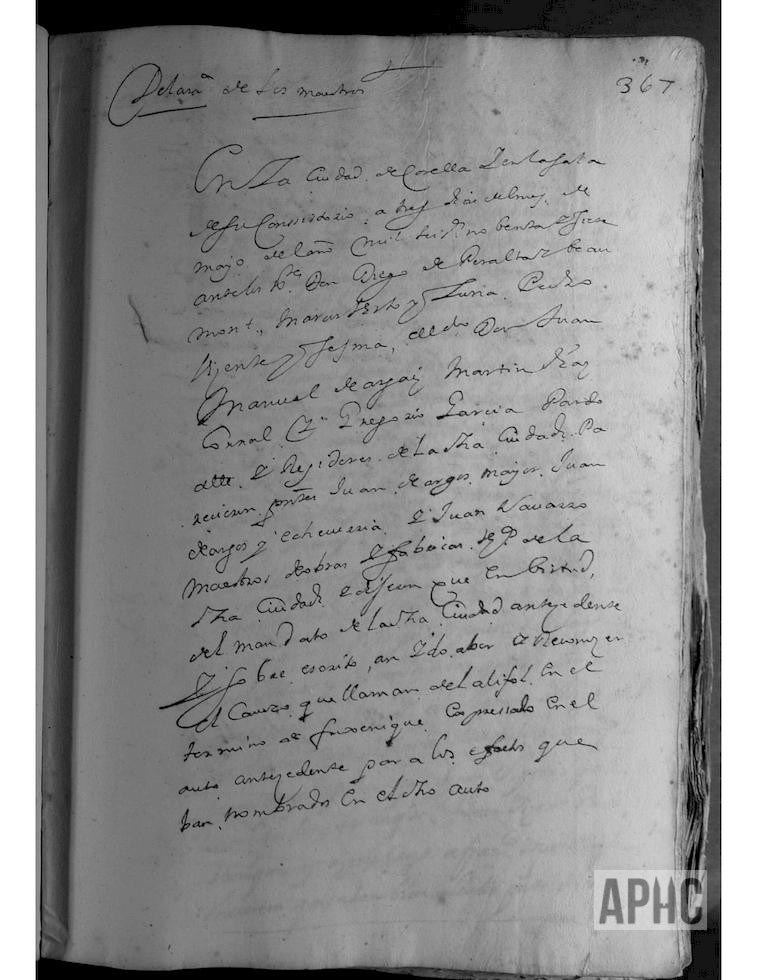 Declaraon de los maestros
367
En La Ciudad de Corella Y en la sala
de su Consistorio a tres dias del mes de
mayo de laño mil seis.os nobenta E siete
ante los ss.res Don Diego de Peralta Y beau
mont, Marcos Y Luna Pedro
Viente y Sesma, el ldo Don Juan
Manuel de argaiz Martin
Corral, Gregorio Garcia Pardo
alle. E Rejidores de La dha Ciudad. Pa
recieron pontes Juan de argos mayor, Juan
de argos y echeverria E Juan Navarro
Maestros de obras E fabricas de la
dha Ciudad E dijeron que en birtud,
del mandato de la dha Ciudad antezedente
E sobre escrito, an Ydo aber E Reconozer
el Cauzo que llaman del alifol. en el
termino de Expressado En el
auto antezedente para los efectos que
ban nombrados En el dho auto
APHC